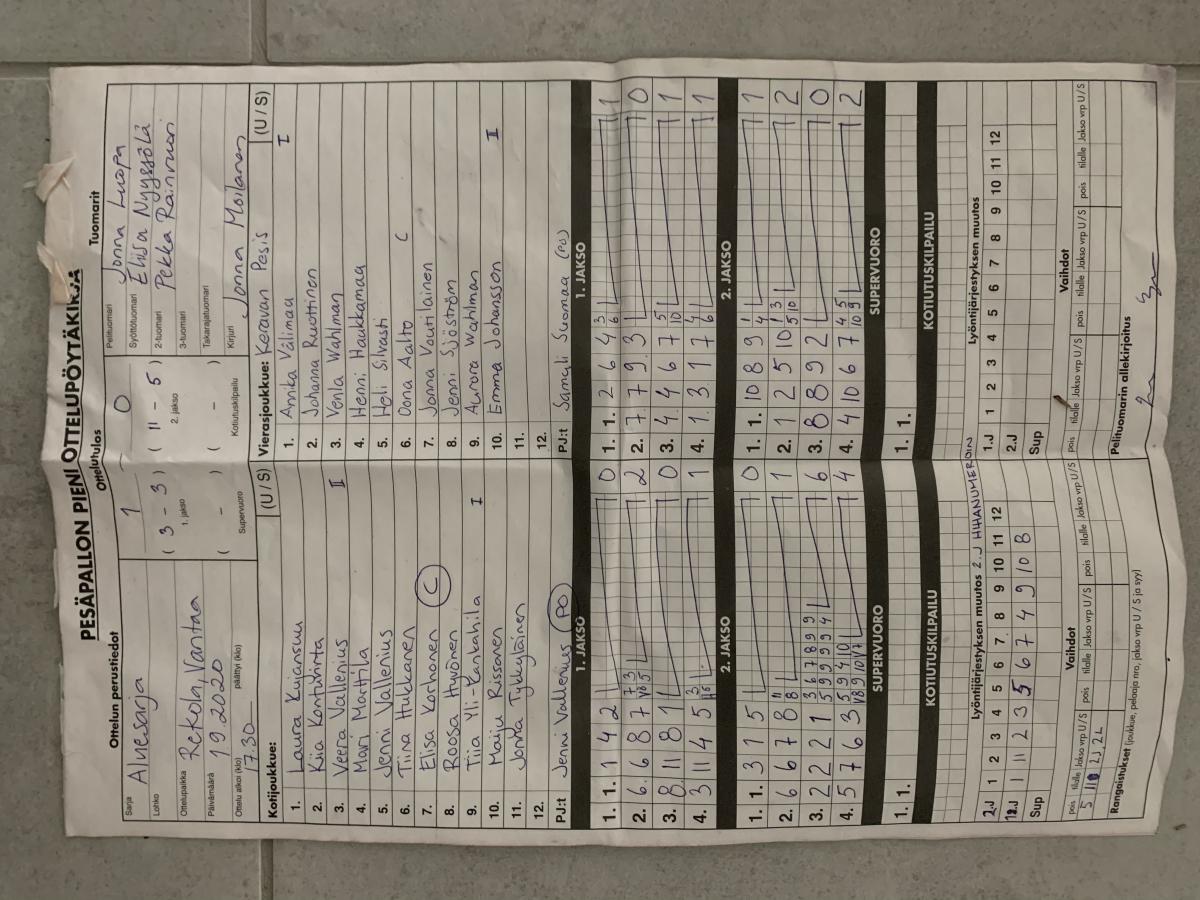 PESÄPALLON PIENI OTTELUPÖYTÄKIRJA
Ottelun perustiedot
Sarja Aluesarja
Lohko
Ottelupaikka Rekola, Vantaa
Päivämäärä 1.9.2020
Ottelu alkoi (klo) 17.30 päättyi (klo)
Ottelutulos
1 - 0
( 3 - 3 ) ( 11 - 5 )
1. jakso 2. jakso
( - ) ( - )
Supervuoro Kotiutuskilpailu
Tuomarit
Pelituomari Jonna Luopa
Syöttötuomari Eliisa Nyyssölä
2-tuomari Pekka Rainvuori
3-tuomari
Takarajatuomari
Kirjuri Jonna Moilanen
Kotijoukkue: (U / S)
1. Laura Kujansuu
2. Kiia Kontuvirta
3. Veera Vallenius II
4. Mari Marttila
5. Jenni Vallenius
6. Tiina Hukkanen
7. Elisa Korhonen C
8. Roosa Hyvönen
9. Tiia Yli-Kankahila I
10. Maiju Rissanen
11. Jonna Tykkyläinen
12.
PJ:t Jenni Vallenius PO
1. JAKSO
1. 1. 1 4 2 0
2. 6 6 8 7 2
3. 8 11 8 1 0
4. 3 11 4 5 1
2. JAKSO
1. 1. 3 1 5 0
2. 6 6 7 8 1
3. 2 2 2 1 6
4. 5 7 6 3 4
SUPERVUORO
1. 1.
KOTIUTUSKILPAILU
Lyöntijärjestyksen muutos 2.J HIHANUMEROIN
2.J 1 2 3 4 5 6 7 8 9 10 11 12
1 11 2 3 5 6 7 4 9 10 8
Sup
Vaihdot
pois tilalle Jakso vrp U / S pois tilalle Jakso vrp U / S pois tilalle Jakso vrp U / S
5 11 2J 2L
Rangaistukset (joukkue, pelaaja nro, jakso vrp, U / S ja syy)
Vierasjoukkue: Keravan Pesis (U / S)
1. Annika Välimaa I
2. Johanna Ruottinen
3. Venla Wahlman
4. Henni Haukkamaa
5. Heli Silvasti
6. Oona Aalto C
7. Jonna Voutilainen
8. Jenni Sjöström
9. Aurora Wahlman
10. Emma Johansson I
11.
12.
PJ:t Samuli Suomaa (PJ)
1. JAKSO
1. 1. 2 6 4 1
2. 7 7 9 3 0
3. 4 4 6 7 1
4. 1 3 1 7 1
2. JAKSO
1. 1. 10 8 9 1
2. 1 2 5 10 2
3. 8 8 9 2 0
4. 4 10 6 7 2
SUPERVUORO
1. 1.
KOTIUTUSKILPAILU
Lyöntijärjestyksen muutos
1.J 1 2 3 4 5 6 7 8 9 10 11 12
2.J
Sup
Vaihdot
pois tilalle Jakso vrp U / S pois tilalle Jakso vrp U / S pois tilalle Jakso vrp U / S
Pelituomarin allekirjoitus